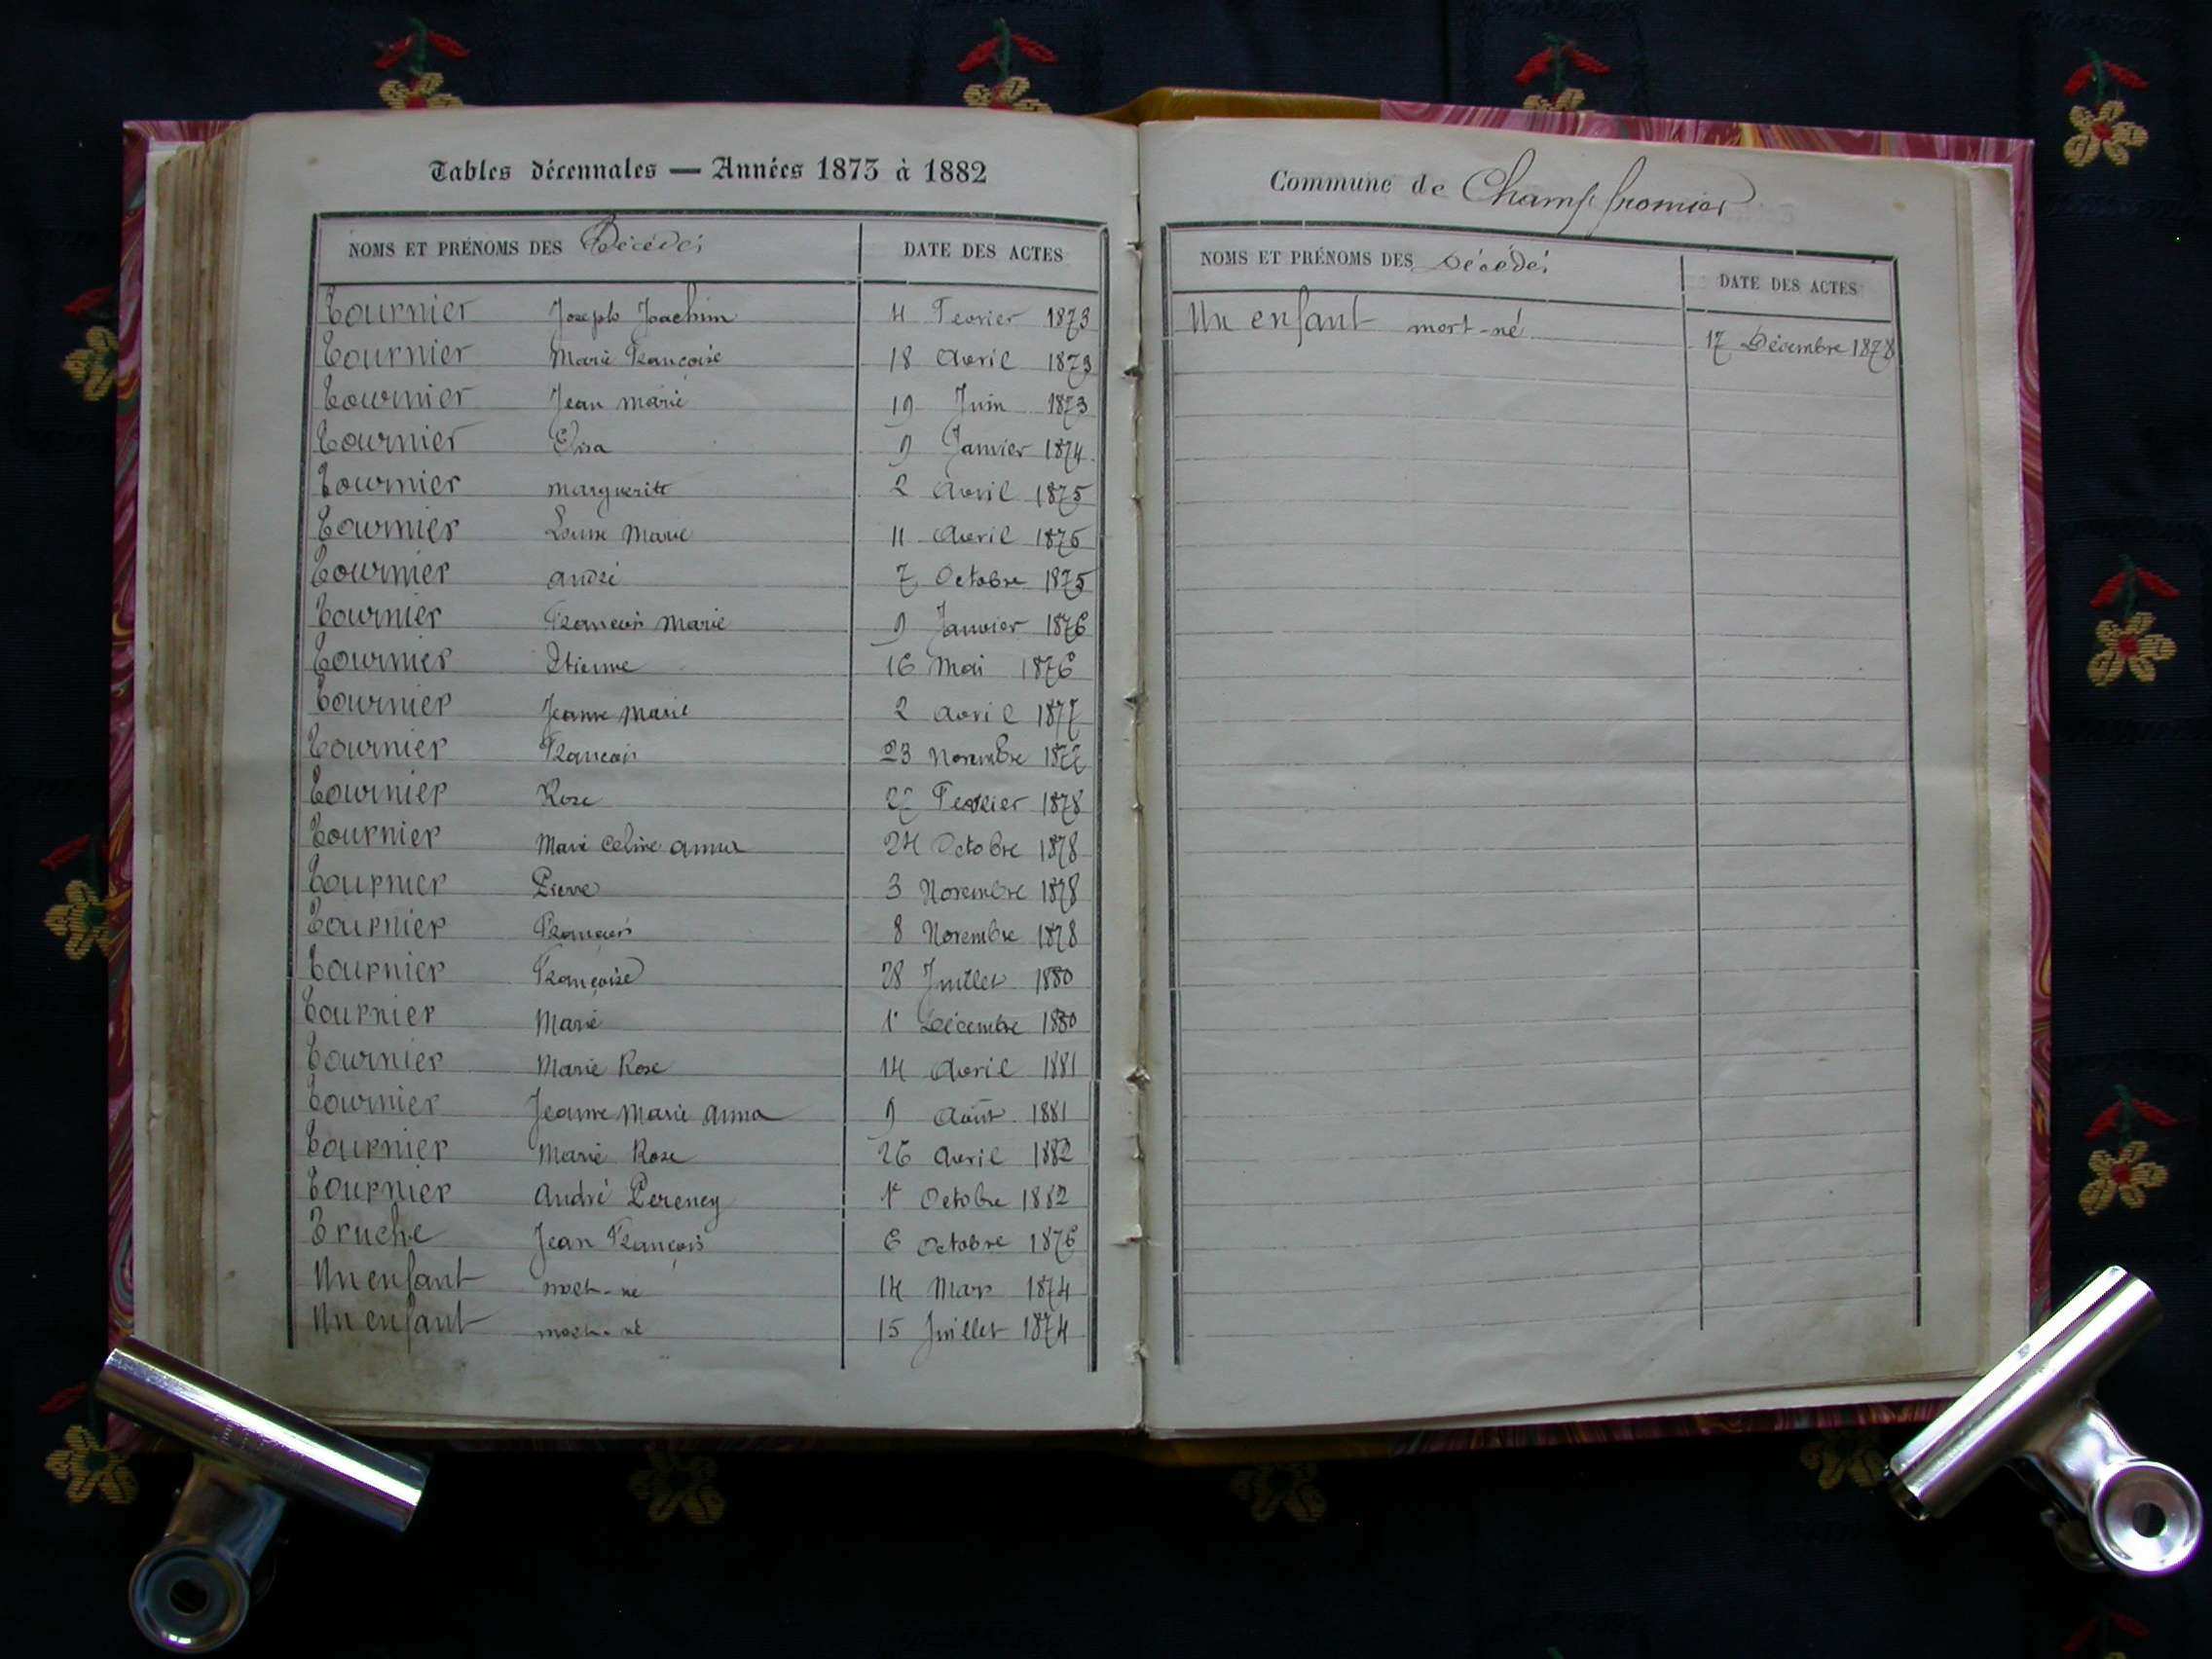 Tables décennales — Années 1873 à 1882
NOMS ET PRÉNOMS DES Décédés DATE DES ACTES
Tournier Joseph Joachim 4 Fevrier 1873
Tournier Marie Francoise 18 Avril 1873
Tournier Jean Marie 19 Juin 1873
Tournier Elisa 9 Janvier 1874
Tournier Marguerite 2 Avril 1875
Tournier Louise Marie 11 Avril 1875
Tournier André 7 Octobre 1875
Tournier Francois Marie 9 Janvier 1876
Tournier Etienne 16 Mai 1876
Tournier Jeanne Marie 2 Avril 1877
Tournier Francois 23 Novembre 1877
Tournier Rose 27 Fevrier 1878
Tournier Marie Celine Anna 24 Octobre 1878
Tournier Pierre 3 Novembre 1878
Tournier François 8 Novembre 1878
Tournier Françoise 28 Juillet 1880
Tournier Marie 1r Décembre 1880
Tournier Marie Rose 14 Avril 1881
Tournier Jeanne Marie Anna 9 Août 1881
Tournier Marie Rose 26 Avril 1882
Tournier André Pereney 1r Octobre 1882
Truche Jean François 6 Octobre 1876
Un enfant mort-né 14 Mars 1874
Un enfant mort-né 15 Juillet 1874
Commune de Champfromier
NOMS ET PRÉNOMS DES Décédés DATE DES ACTES
Un enfant mort-né 17 Décembre 1878